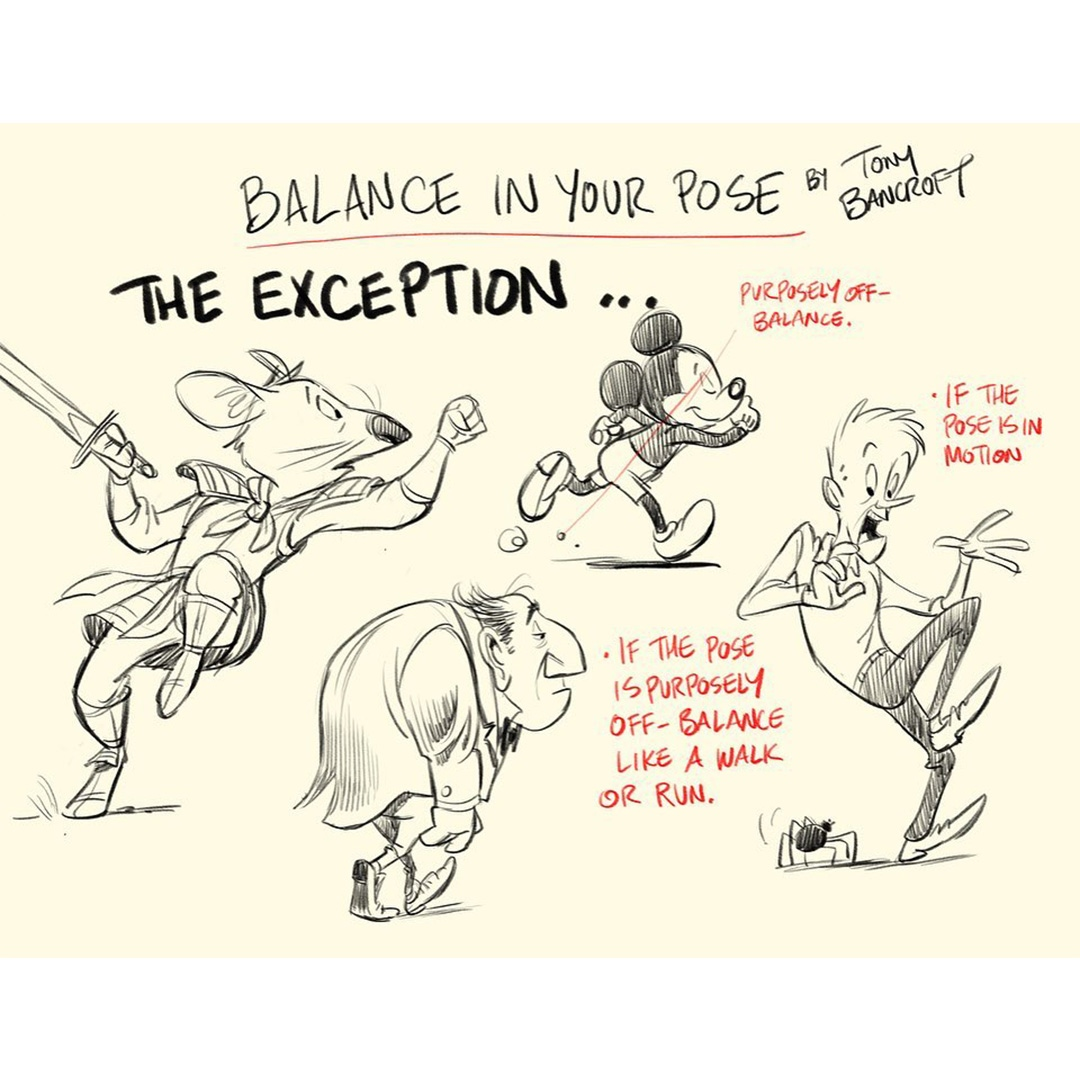 BALANCE IN YOUR POSE BY TONY
BANCROFT
THE EXCEPTION ...
PURPOSELY OFF-
BALANCE.
• IF THE
POSE IS IN
MOTION
• IF THE POSE
IS PURPOSELY
OFF-BALANCE
LIKE A WALK
OR RUN.